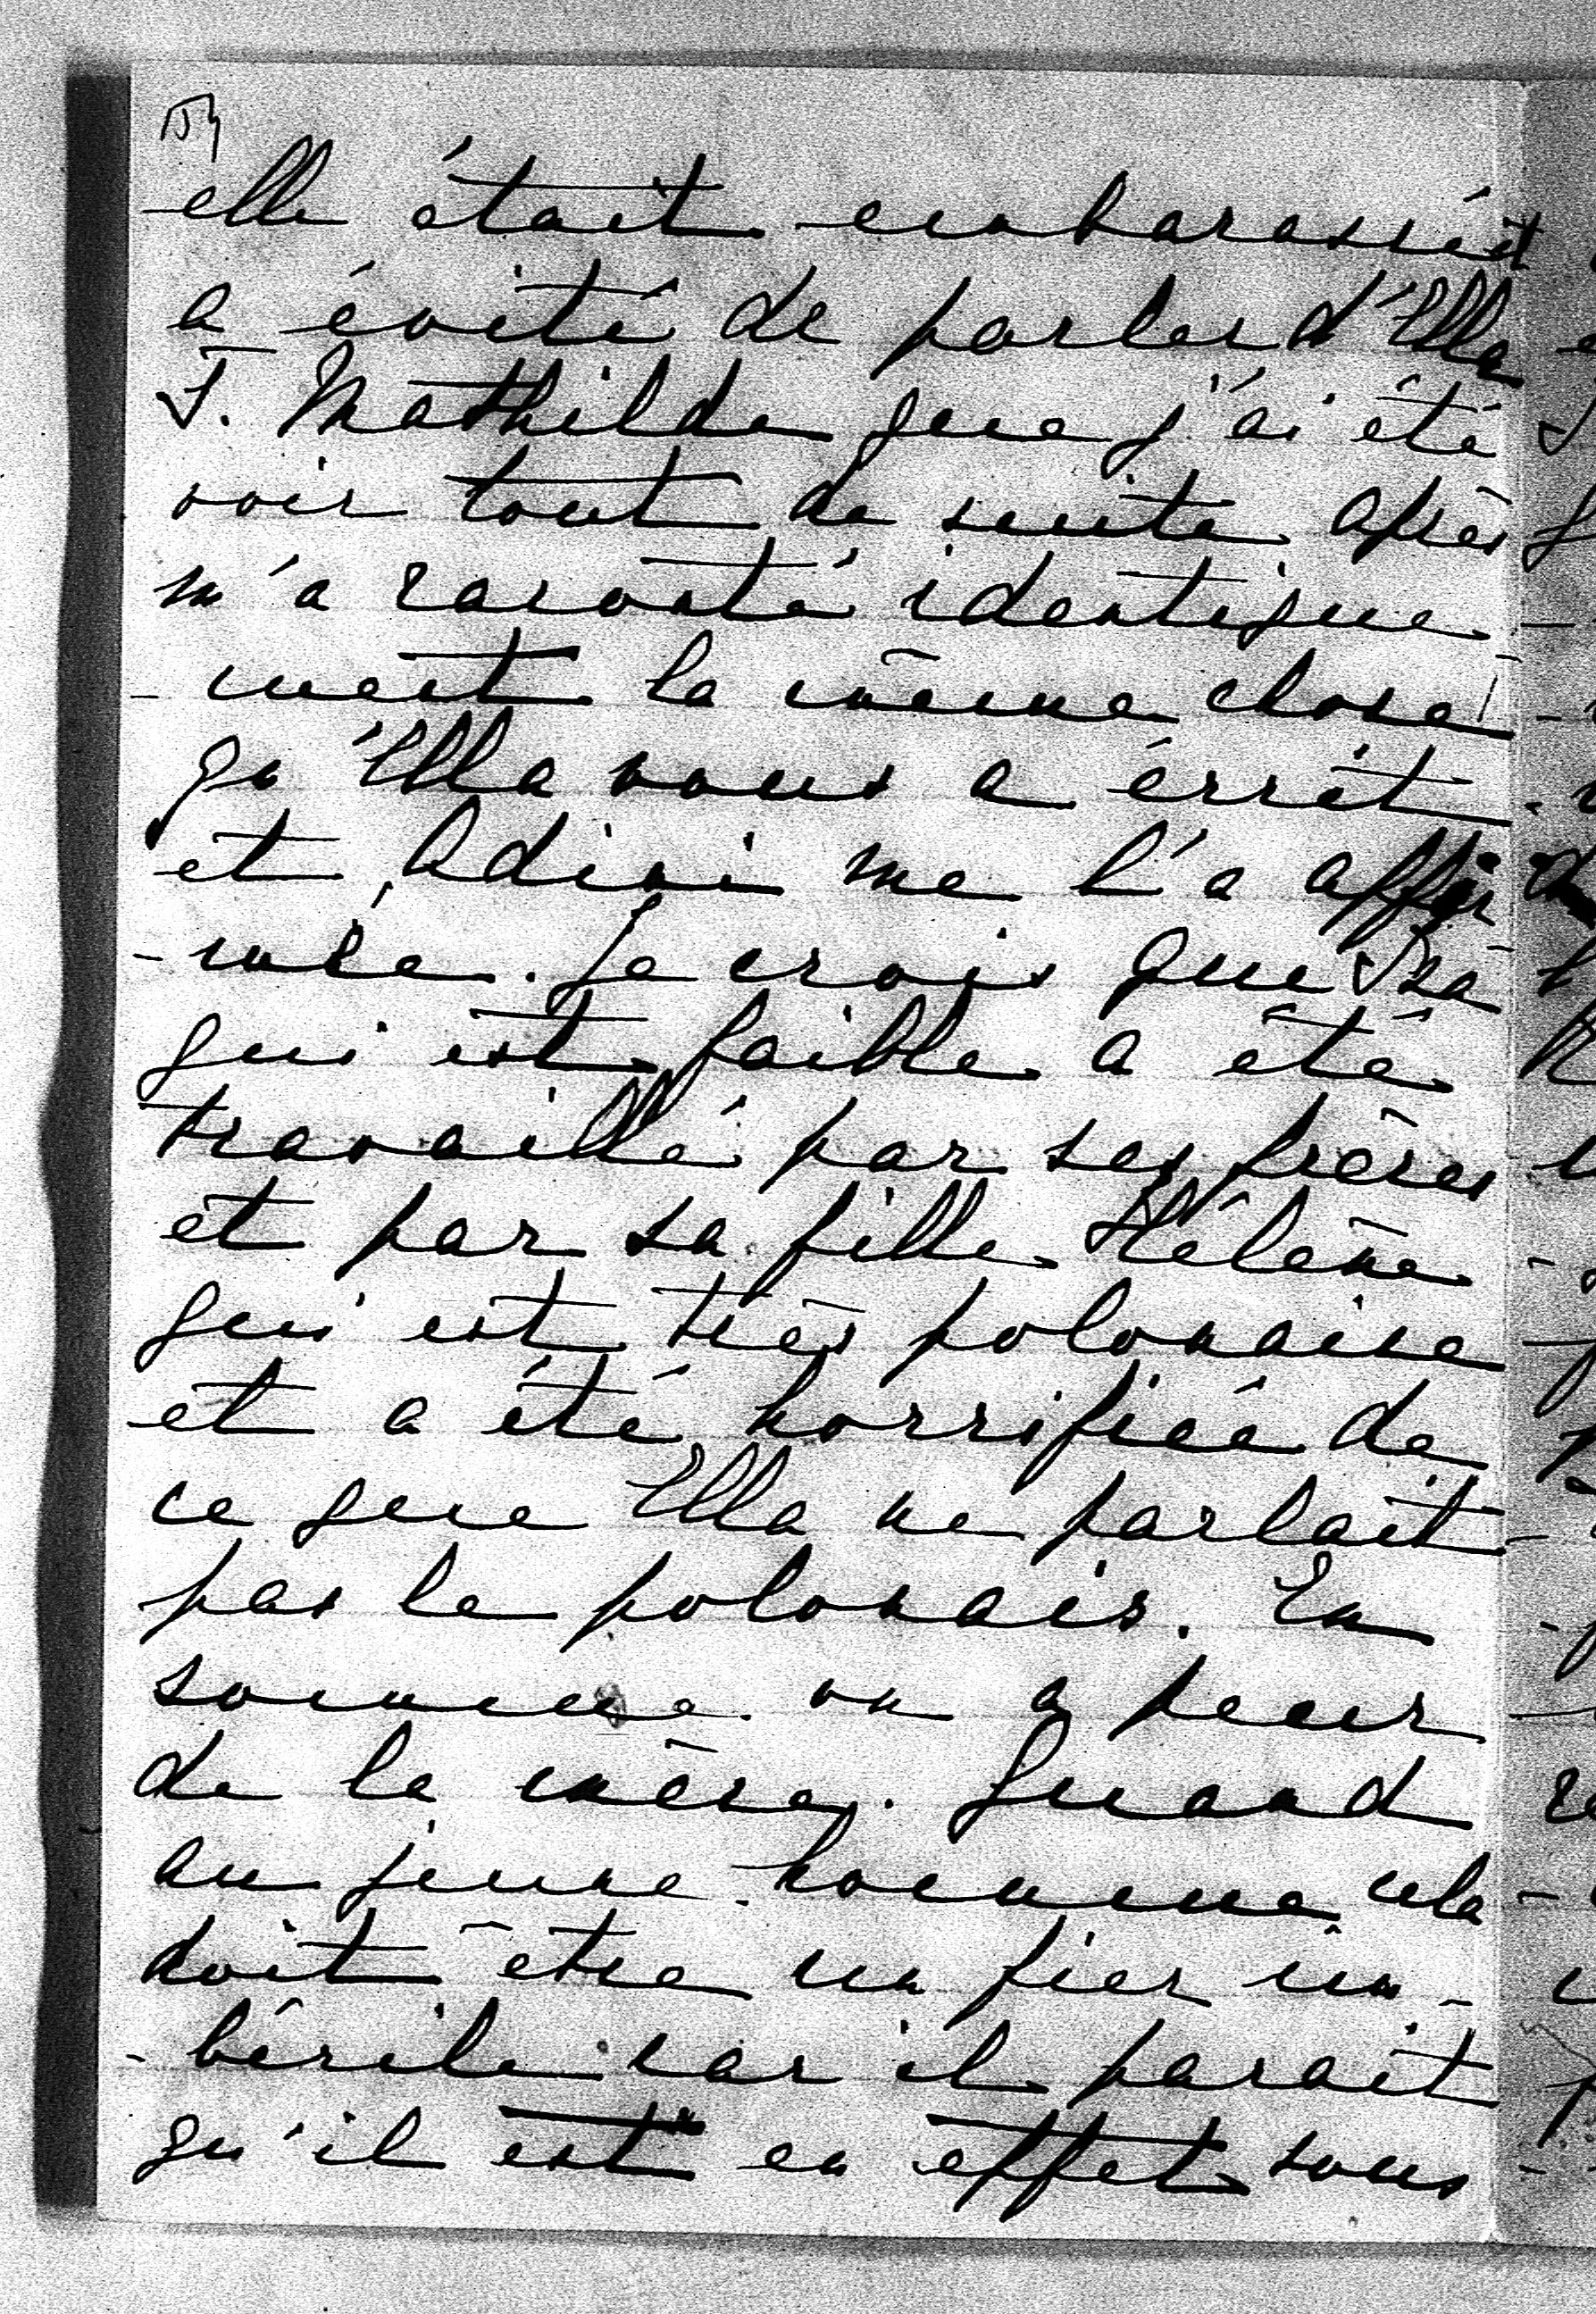 elle était embarassée et
a évité de parler d'Ella
T. Mathilde que j'ai été
voir tout de suite après
m'a raconté identique
- ment la même chose
qu'Ella vous a écrit
et Adini me l'a affir
- mée. Je crois que
qui est faible a été
travaillé par ses frères
et par sa fille Hélène
qui est très polonaise
et a été horrifiée de
ce que Ella ne parlait
pas le polonais. En
somme on a peur
de la mère. Quand
au jeune homme cela
doit être un fier im -
- bécile car il parait
qu'il est en effet sous